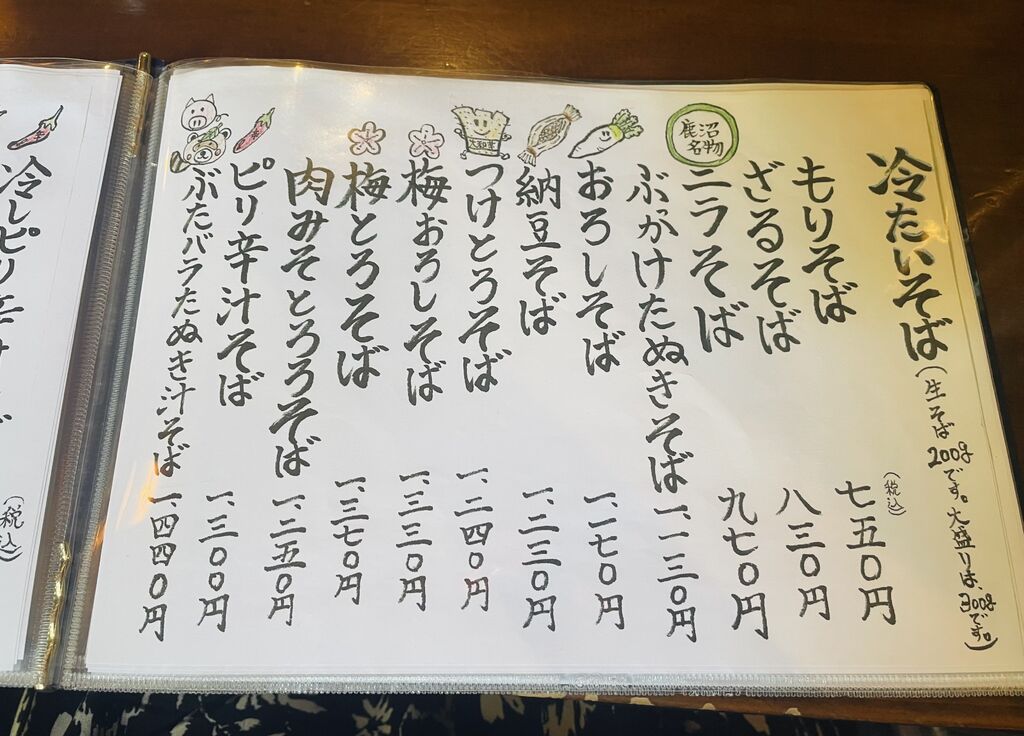 冷たいそば(生そば200gです。大盛りは、300gです。)
(税込)
もりそば 七五〇円
ざるそば 八三〇円
鹿沼名物
ニラそば 九七〇円
ぶっかけたぬきそば 一、一三〇円
おろしそば 一、一七〇円
納豆そば 一、二三〇円
大和芋
つけとろそば 一、二四〇円
梅おろしそば 一、三三〇円
梅とろそば 一、三七〇円
肉みそとろろそば 一、二五〇円
ピリ辛汁そば 一、三〇〇円
ぶたバラたぬき汁そば 一、四四〇円
(税込)
冷しピリ辛